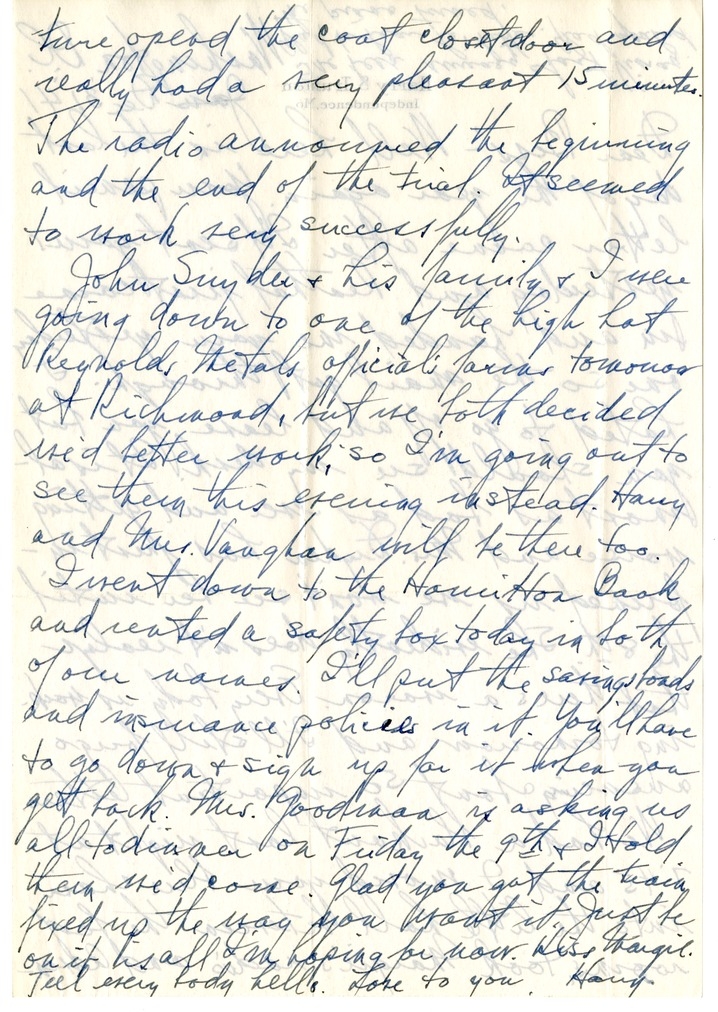 ture opend the coat closet door and
really had a very pleasant 15 minutes.
The radio announced the beginning
and the end of the trial. It seemed
to work very successfully.
John Snyder & his family & I were
going down to one of the high hat
Reynolds Metals officials farms tomorrow
at Richmond, but we both decided
we'd better work, so I'm going out to
see them this evening instead. Harry
and Mrs. Vaughan will be there too.
I went down to the Hamilton Bank
and rented a safety box today in both
of our names. I'll put the savings bonds
and insurance policies in it. You'll have
to go down & sign up for it when you
get back. Mrs. Goodman is asking us
all to dinner on Friday the 9th & I told
them we'd come. Glad you got the train
fixed up the way you want it. Just be
on it is all I'm hoping for now. Kiss Margie.
Tell every body hello. Love to you. Harry.